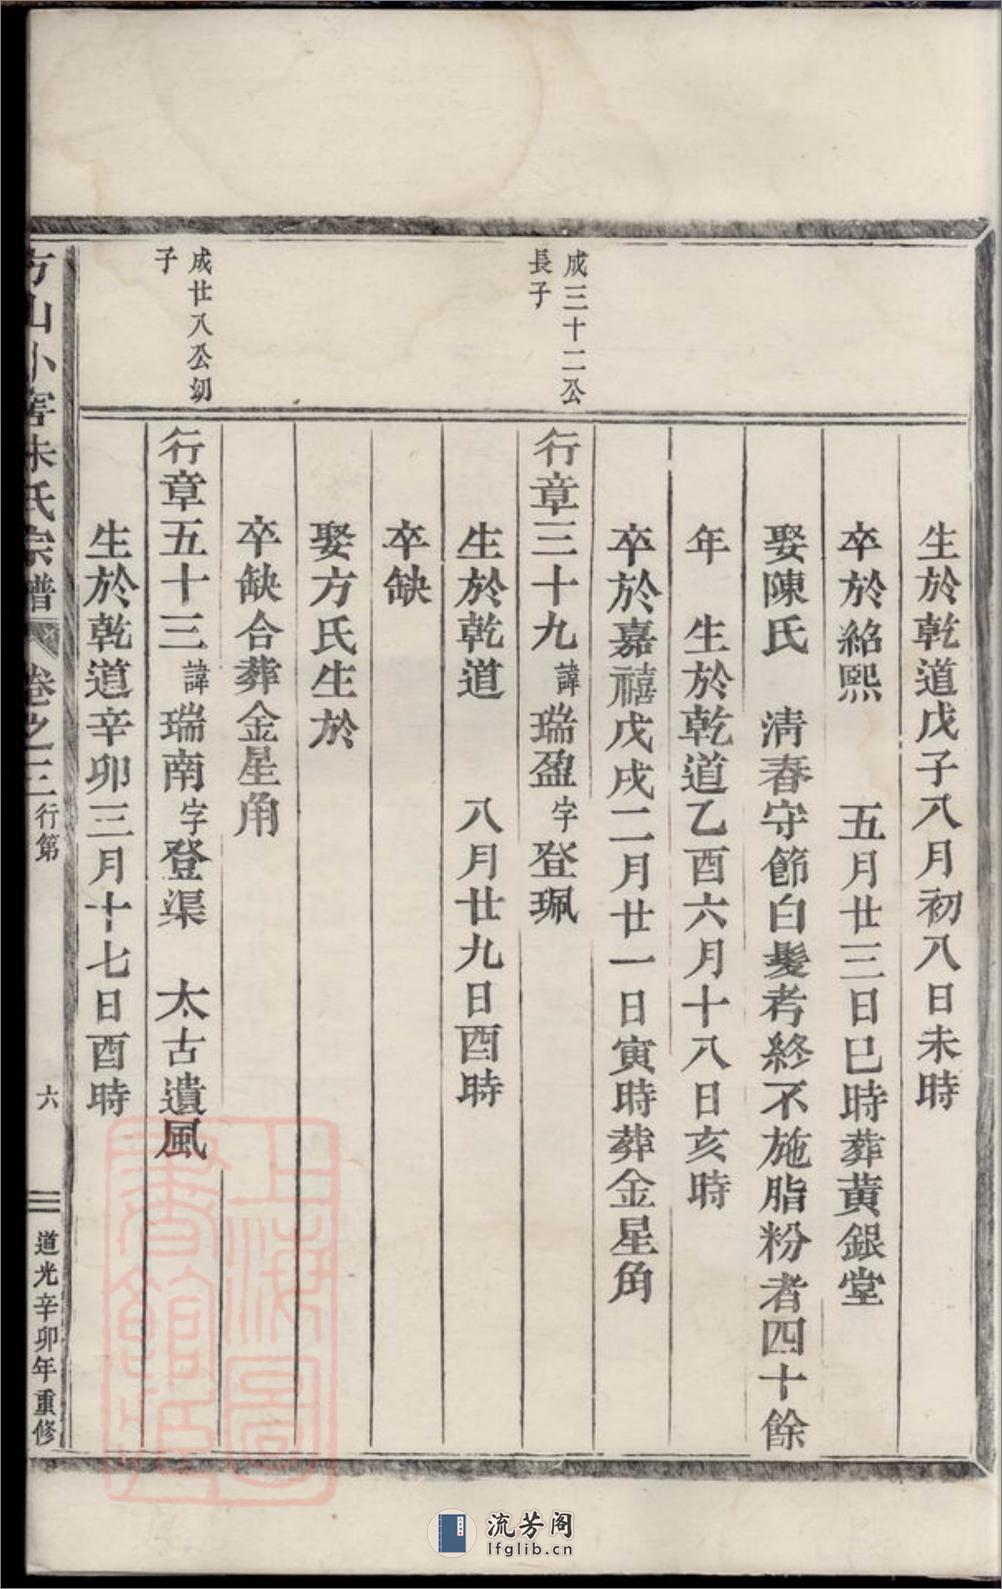 生於乾道戊子八月初八日未時
卒於紹熙 五月廿三日巳時葬黃銀堂
娶陳氏 清春守節白髮考終不施脂粉者四十餘
年 生於乾道乙酉六月十八日亥時
卒於嘉禧戊戌二月廿一日寅時葬金星角
成三十二公
長子
行章三十九諱瑞盈字登珮
生於乾道 八月廿九日酉時
卒缺
娶方氏生於
卒缺合葬金星角
成廿八公幼
子
行章五十三諱瑞南字登渠 太古遺風
生於乾道辛卯三月十七日酉時
方山小窖朱氏宗譜 卷之三 行第 六 道光辛卯年重修
上海圖
書館藏
流芳阁
lfglib.cn